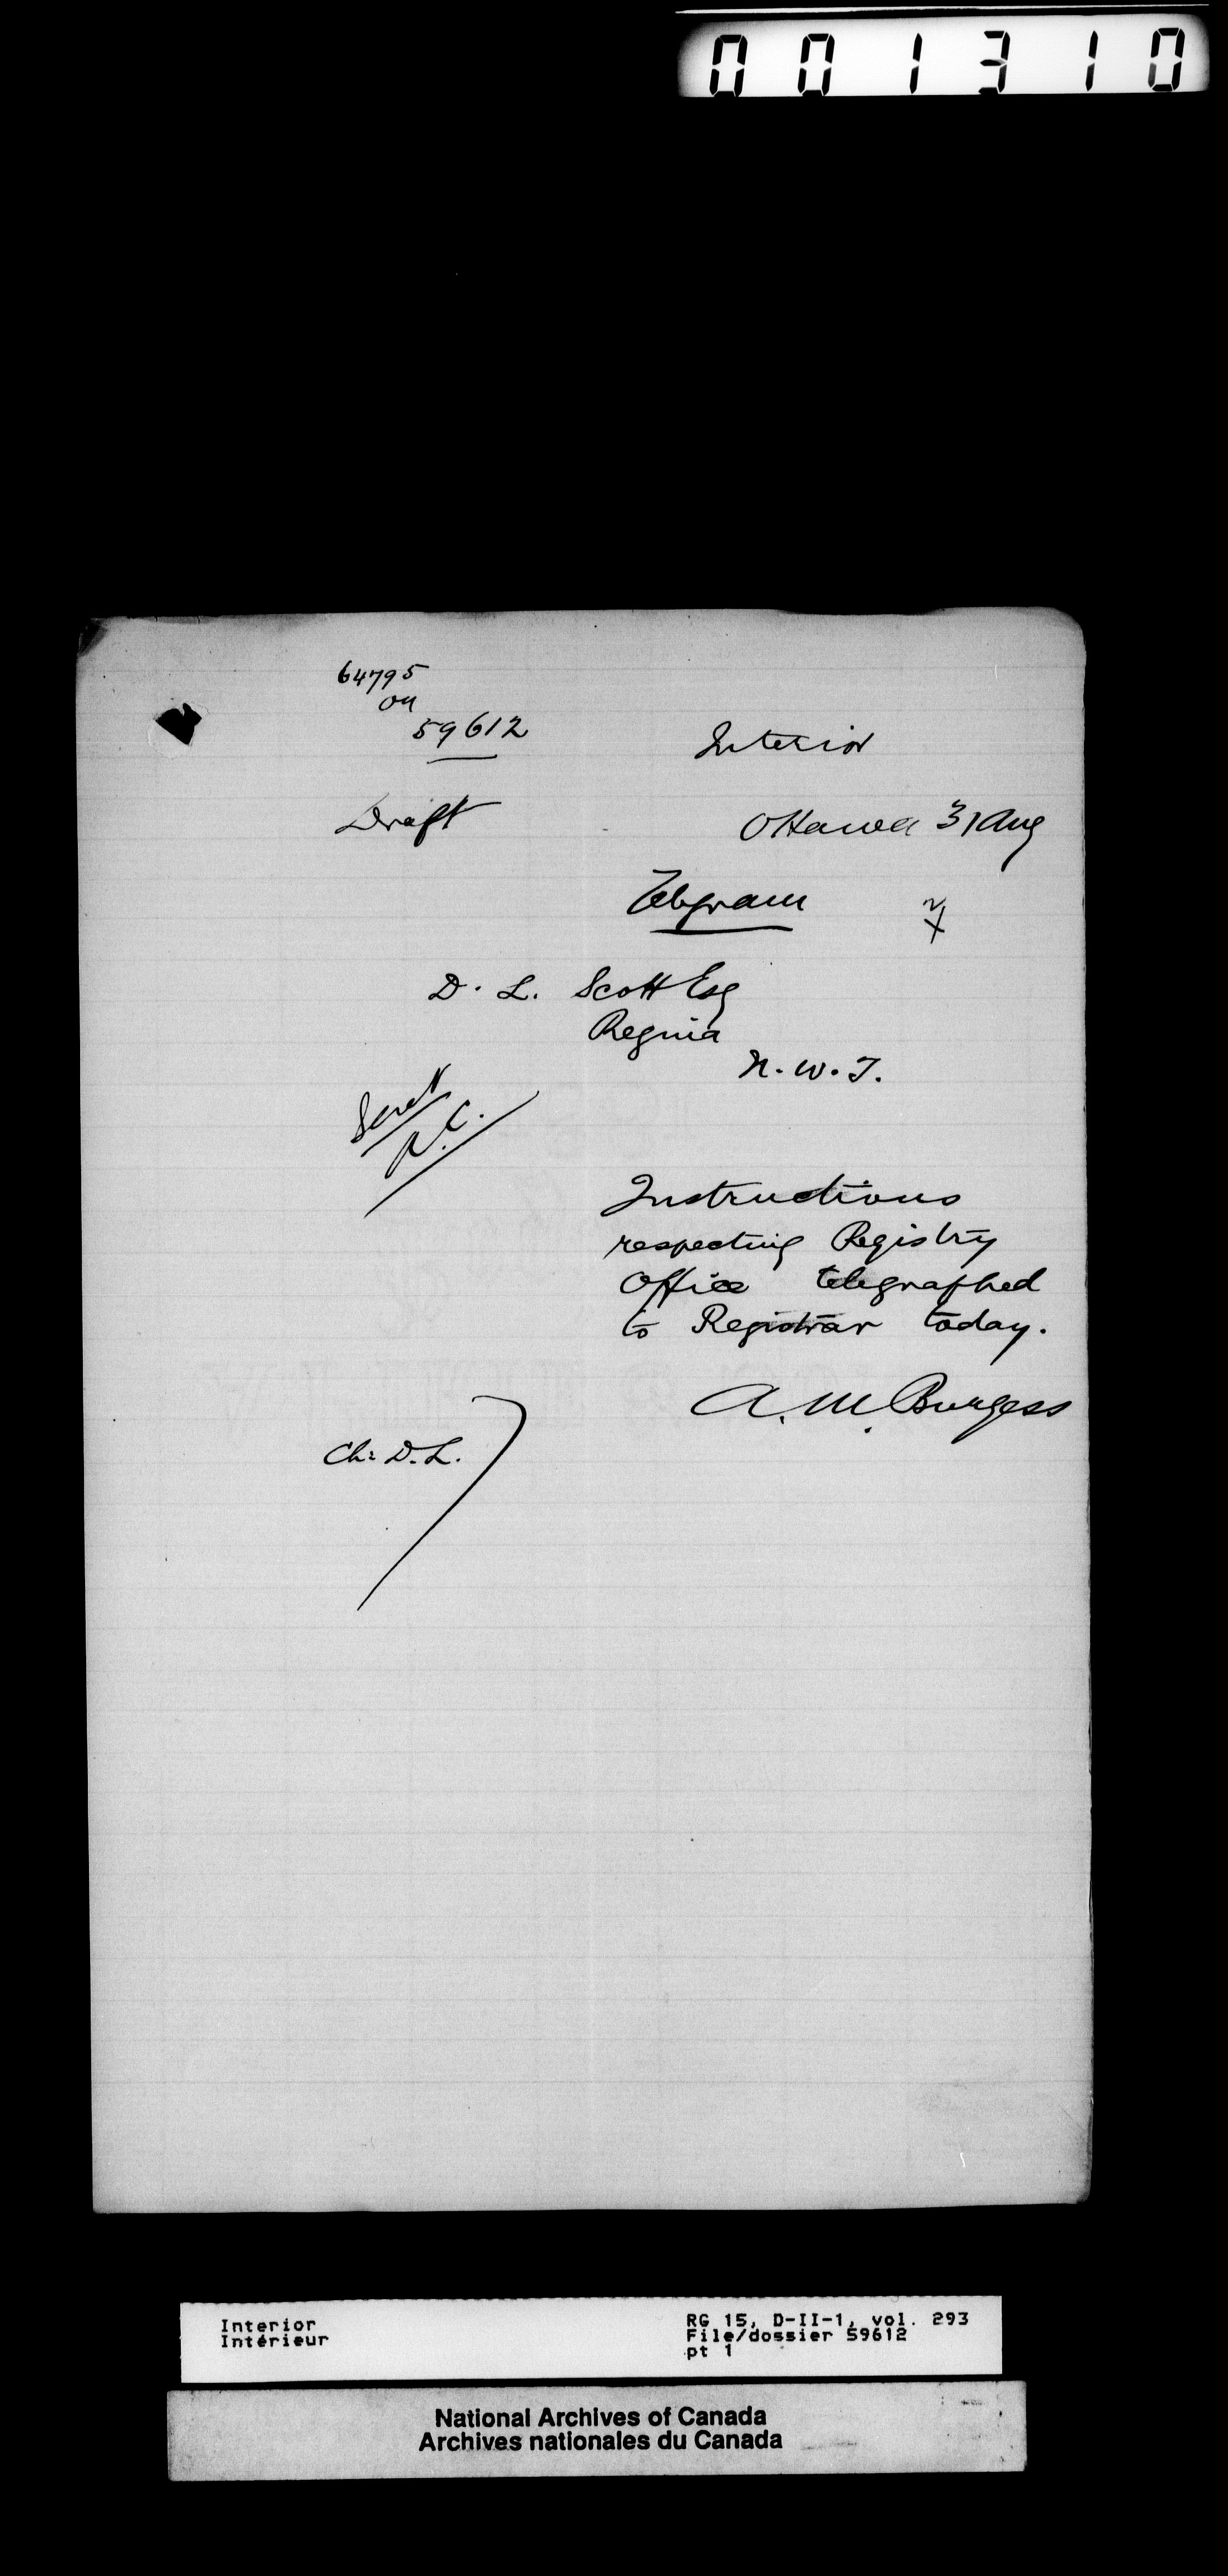 001310
64795
on
59612
Interior
Draft
Ottawa 31 Aug
Telegram
D. L. Scott Esq
Regina
N.W.T.
Sent
Instructions
respecting Registry
Office telegraphed
to Registrar today.
A. M. Burgess
Ch: D.L.
Interior
Intérieur
RG 15, D-II-1, vol. 293
File/dossier 59612
pt 1
National Archives of Canada
Archives nationales du Canada